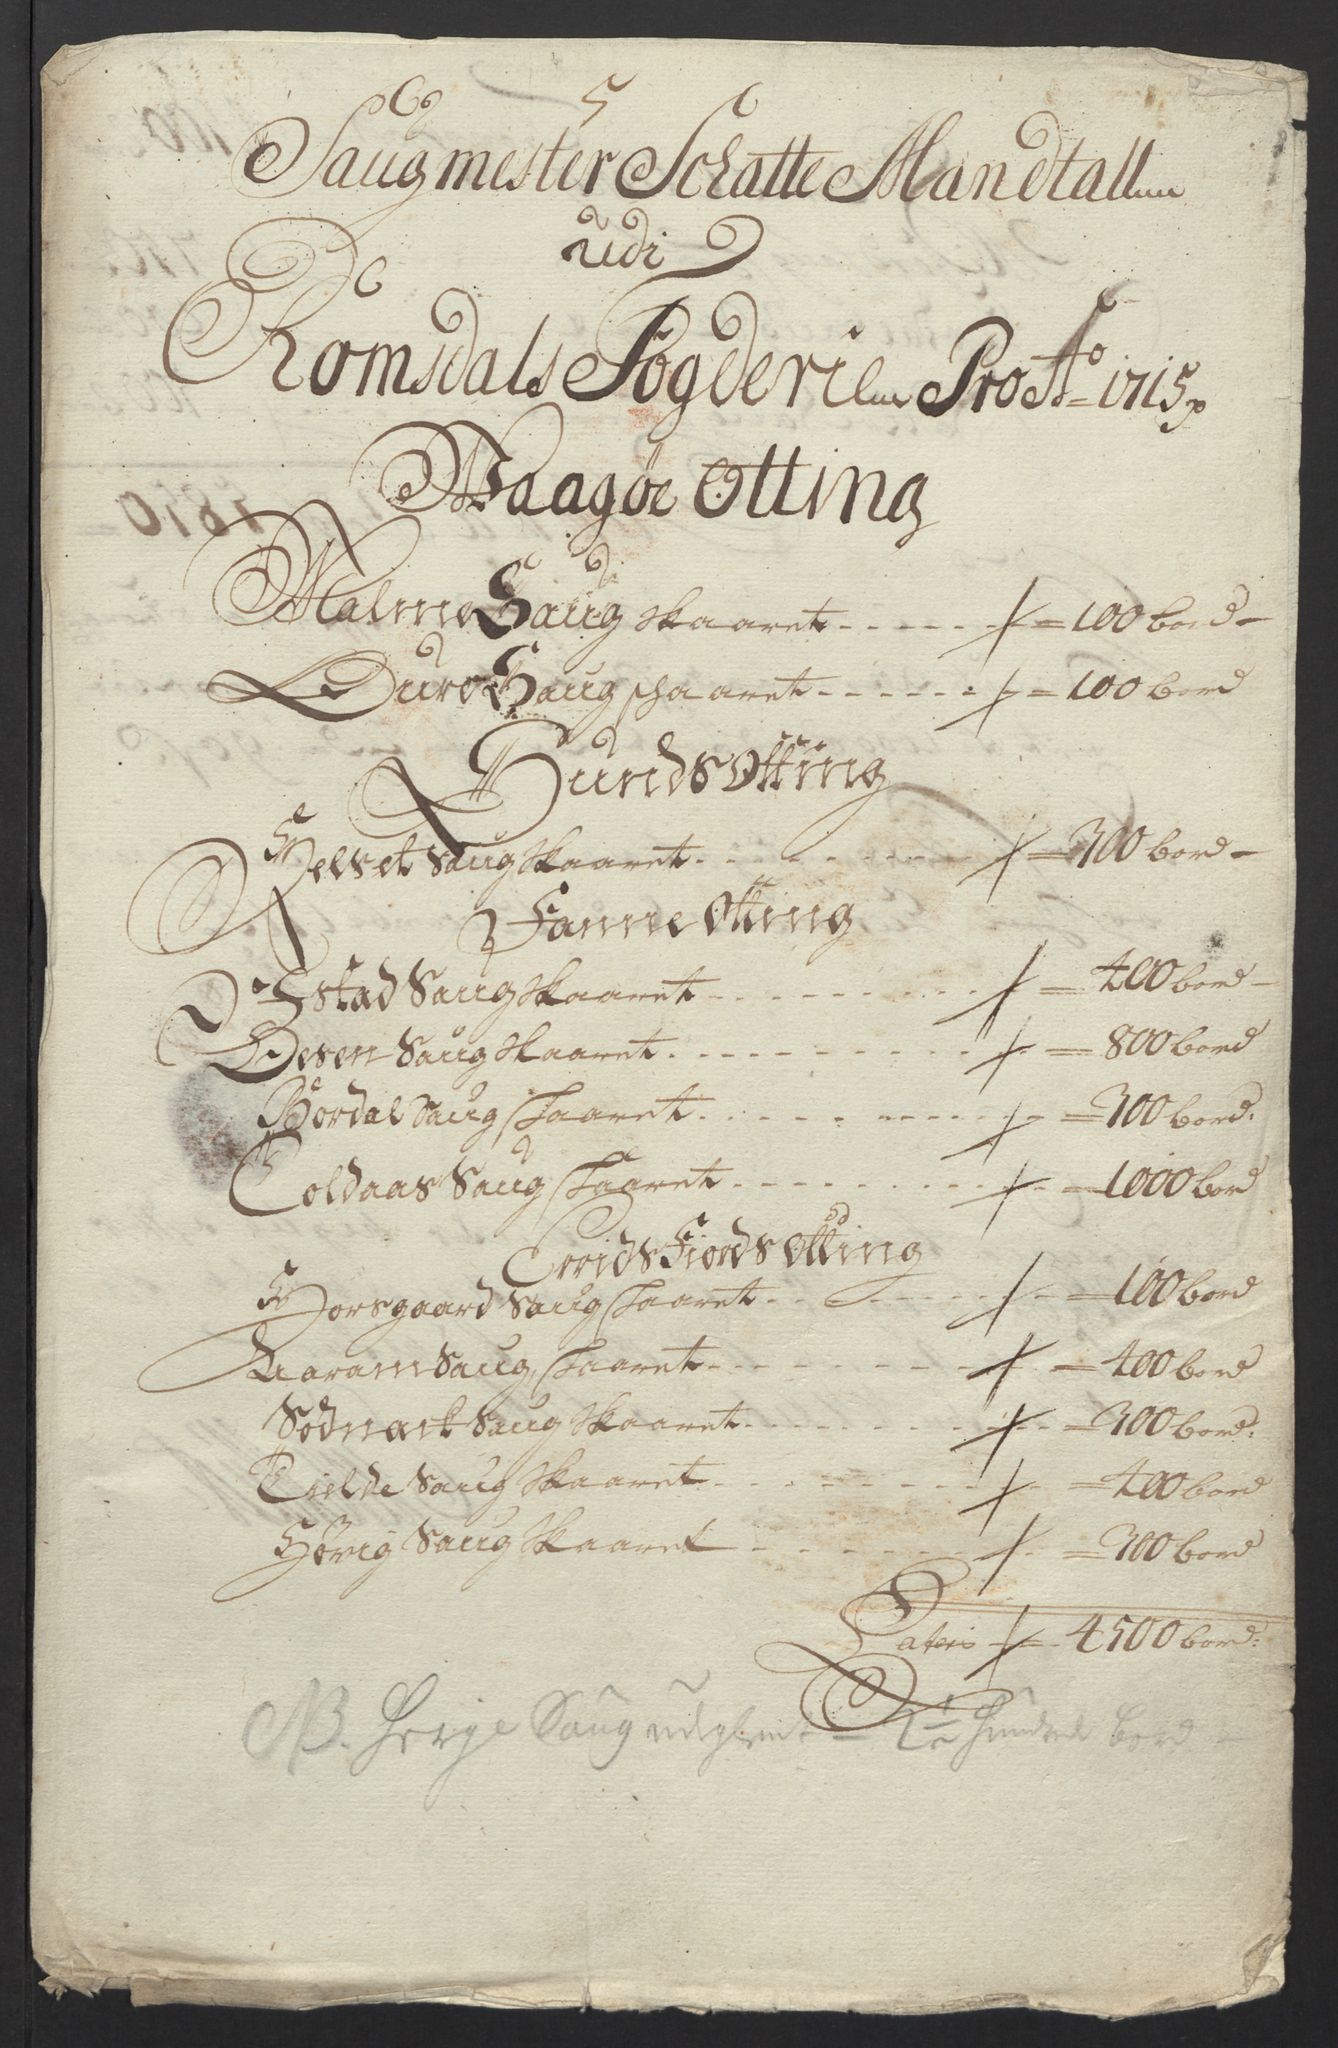 Saugmester Schatte Mandtall
udi
Romsdals Fogderie Pro Ao 1715
Waagøe Otting
Malme Saug skaaret - - - - - - 100 bord -
Bure Saug skaaret - - - - - - 100 bord
Sunds Otting
Helset Saug skaaret - - - - - - 300 bord -
Fanne Otting
Dito Istad Saug skaaret - - - - - - 400 bord -
Oesen Saug skaaret - - - - - - 800 bord
Bordal Saug skaaret - - - - - - 300 bord
Toldaas Saug skaaret - - - - - - 1000 bord
Erridsfiords Otting
Horsgaard Saug skaaret - - - - - - 100 bord
Liaram Saug skaaret - - - - - - 400 bord
Sødnact Saug skaaret - - - - - - 300 bord
Tielde Saug skaaret - - - - - - 400 bord
Hørig Saug skaaret - - - - - - 300 bord
Lateris - 4500 bord
NB. Herje Saug udglemt - hundrede bord